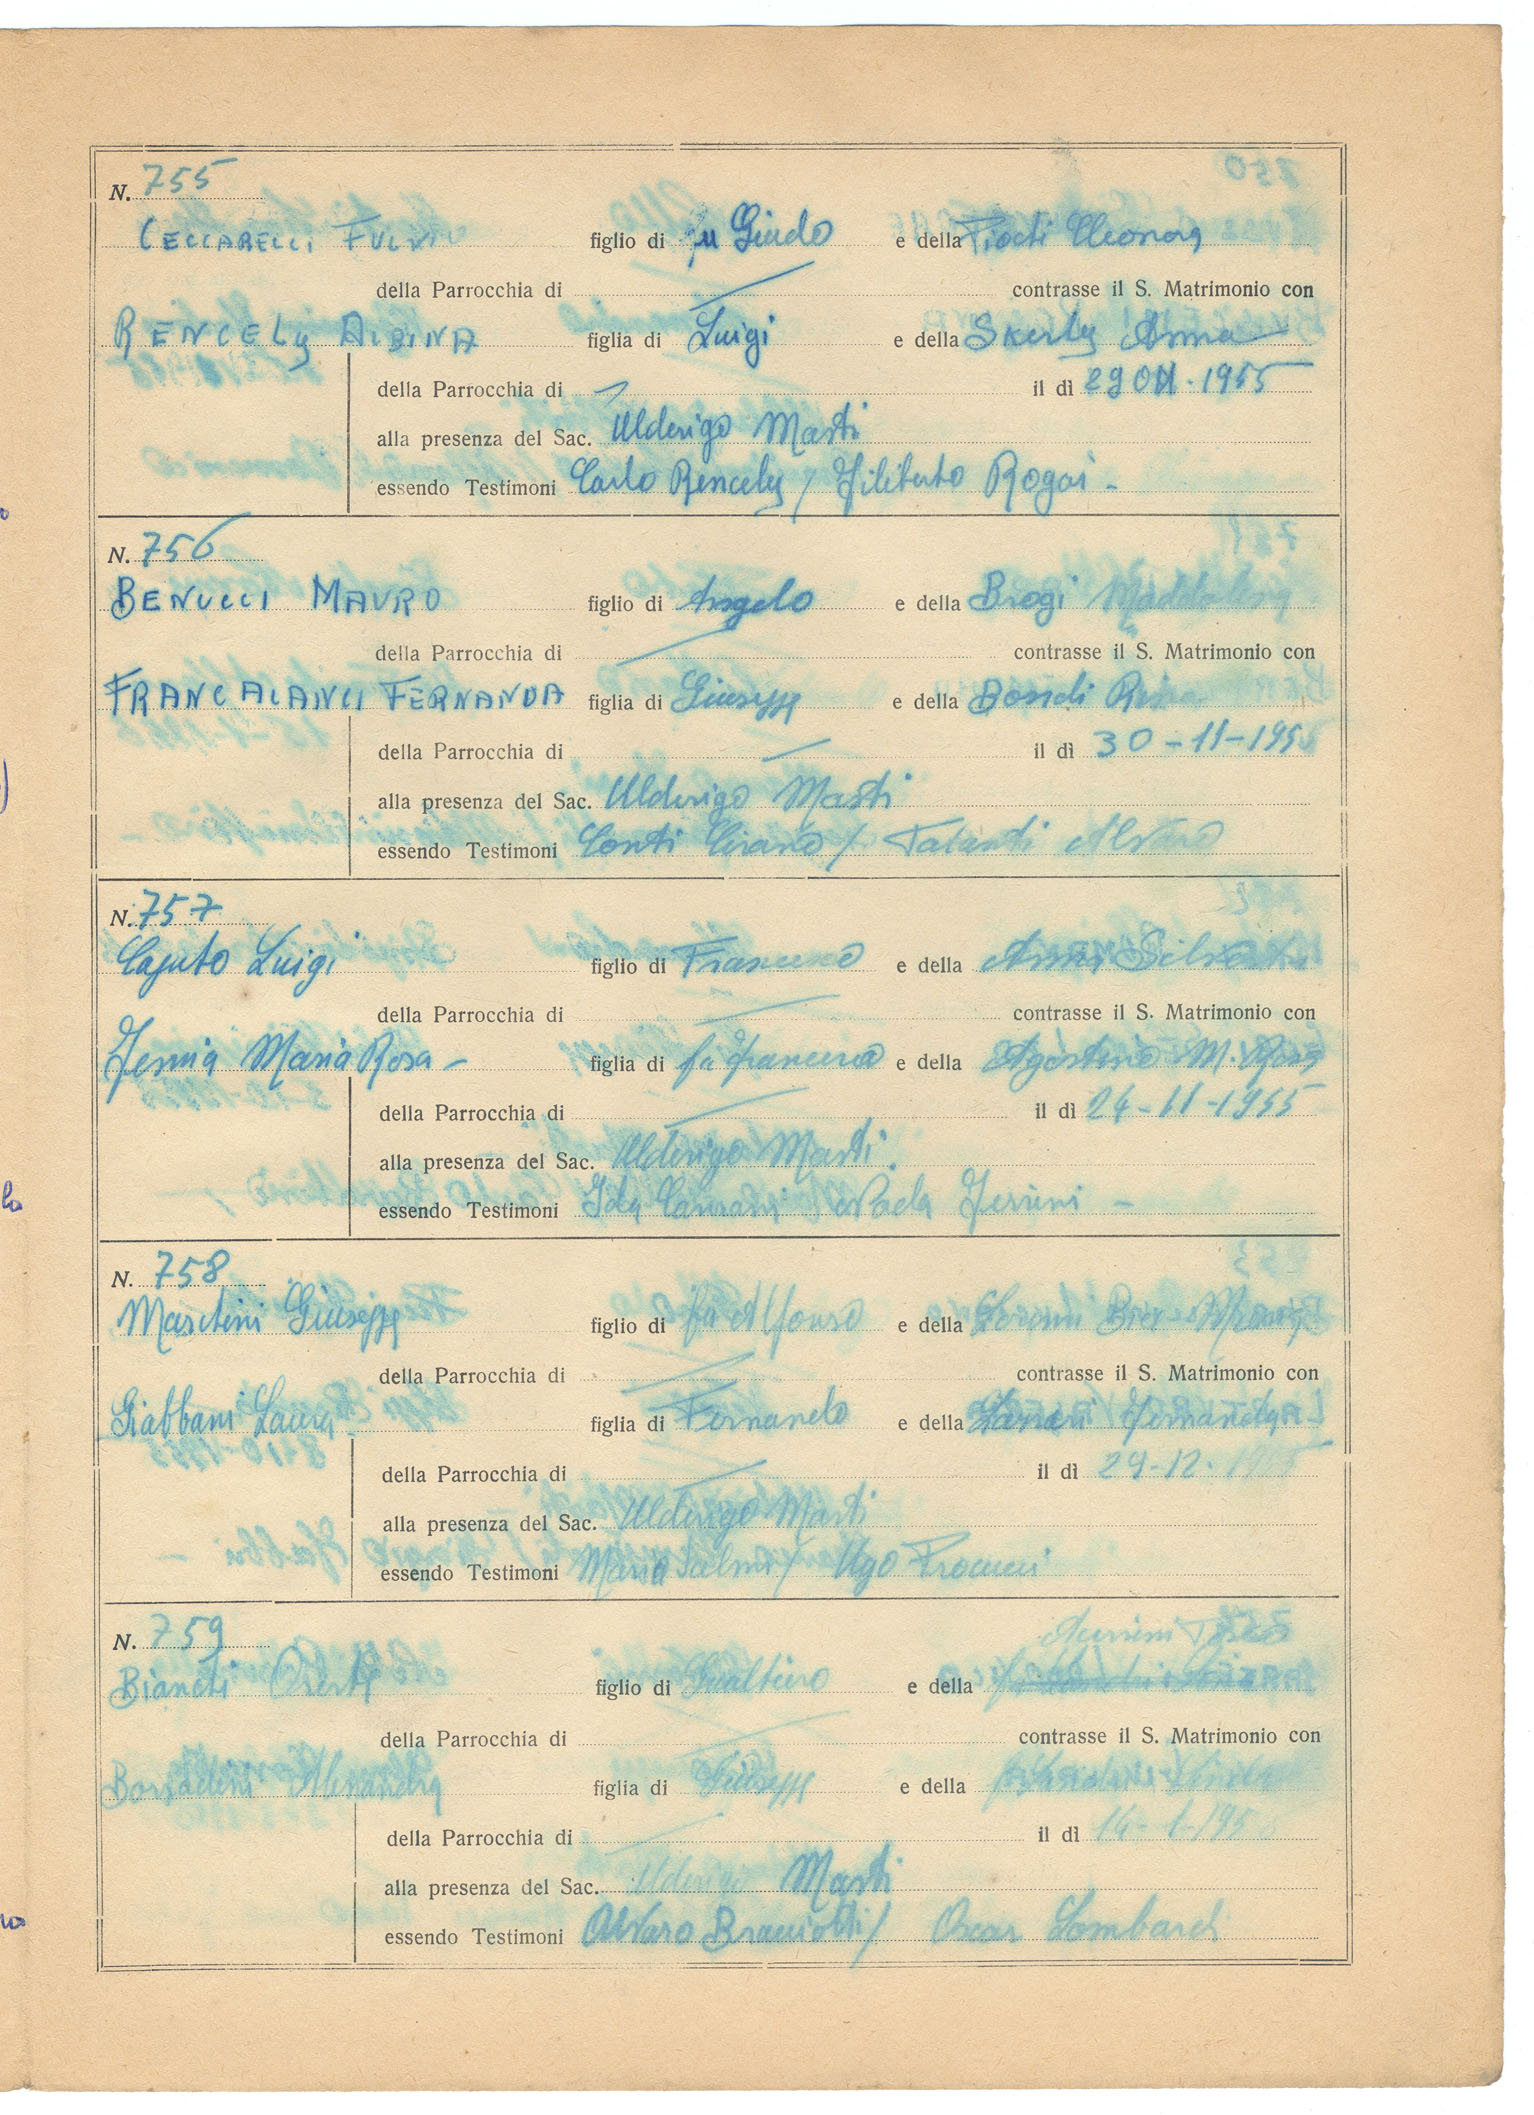 N. 755
CECCARELLI FULVIO figlio di fu Guido e della Eleonora
della Parrocchia di contrasse il S. Matrimonio con
RENCELY ALBINA figlia di Luigi e della Skerly Anna
della Parrocchia di il dì 29 Ott. 1955
alla presenza del Sac. Ulderigo Masti
essendo Testimoni Carlo Rencely / Filiberto Rogai -
N. 756
BENUCCI MAURO figlio di Angelo e della Brogi Maddalena
della Parrocchia di contrasse il S. Matrimonio con
FRANCALANCI FERNANDA figlia di Giuseppe e della Bondi Rina
della Parrocchia di il dì 30-11-1955
alla presenza del Sac. Ulderigo Masti
essendo Testimoni Conti / Talanti Alvaro
N. 757
Caputo Luigi figlio di Francesco e della
della Parrocchia di contrasse il S. Matrimonio con
Maria Rosa - figlia di fu Francesco e della Agostino M. Rosa
della Parrocchia di il dì 24-11-1955
alla presenza del Sac. Ulderigo Masti.
essendo Testimoni Ida Paola -
N. 758
Giuseppe figlio di fu Alfonso e della
della Parrocchia di contrasse il S. Matrimonio con
Giabbani Laura figlia di Fernando e della Fernanda
della Parrocchia di il dì 29-12-1955
alla presenza del Sac. Ulderigo Masti
essendo Testimoni Maria Salmi / Ugo
N. 759
Bianchi figlio di Gualtiero e della
della Parrocchia di contrasse il S. Matrimonio con
Alessandra figlia di Giuseppe e della
della Parrocchia di il dì 14-1-195
alla presenza del Sac. Ulderigo Masti
essendo Testimoni Alvaro Braciotti / Oscar Lombardi